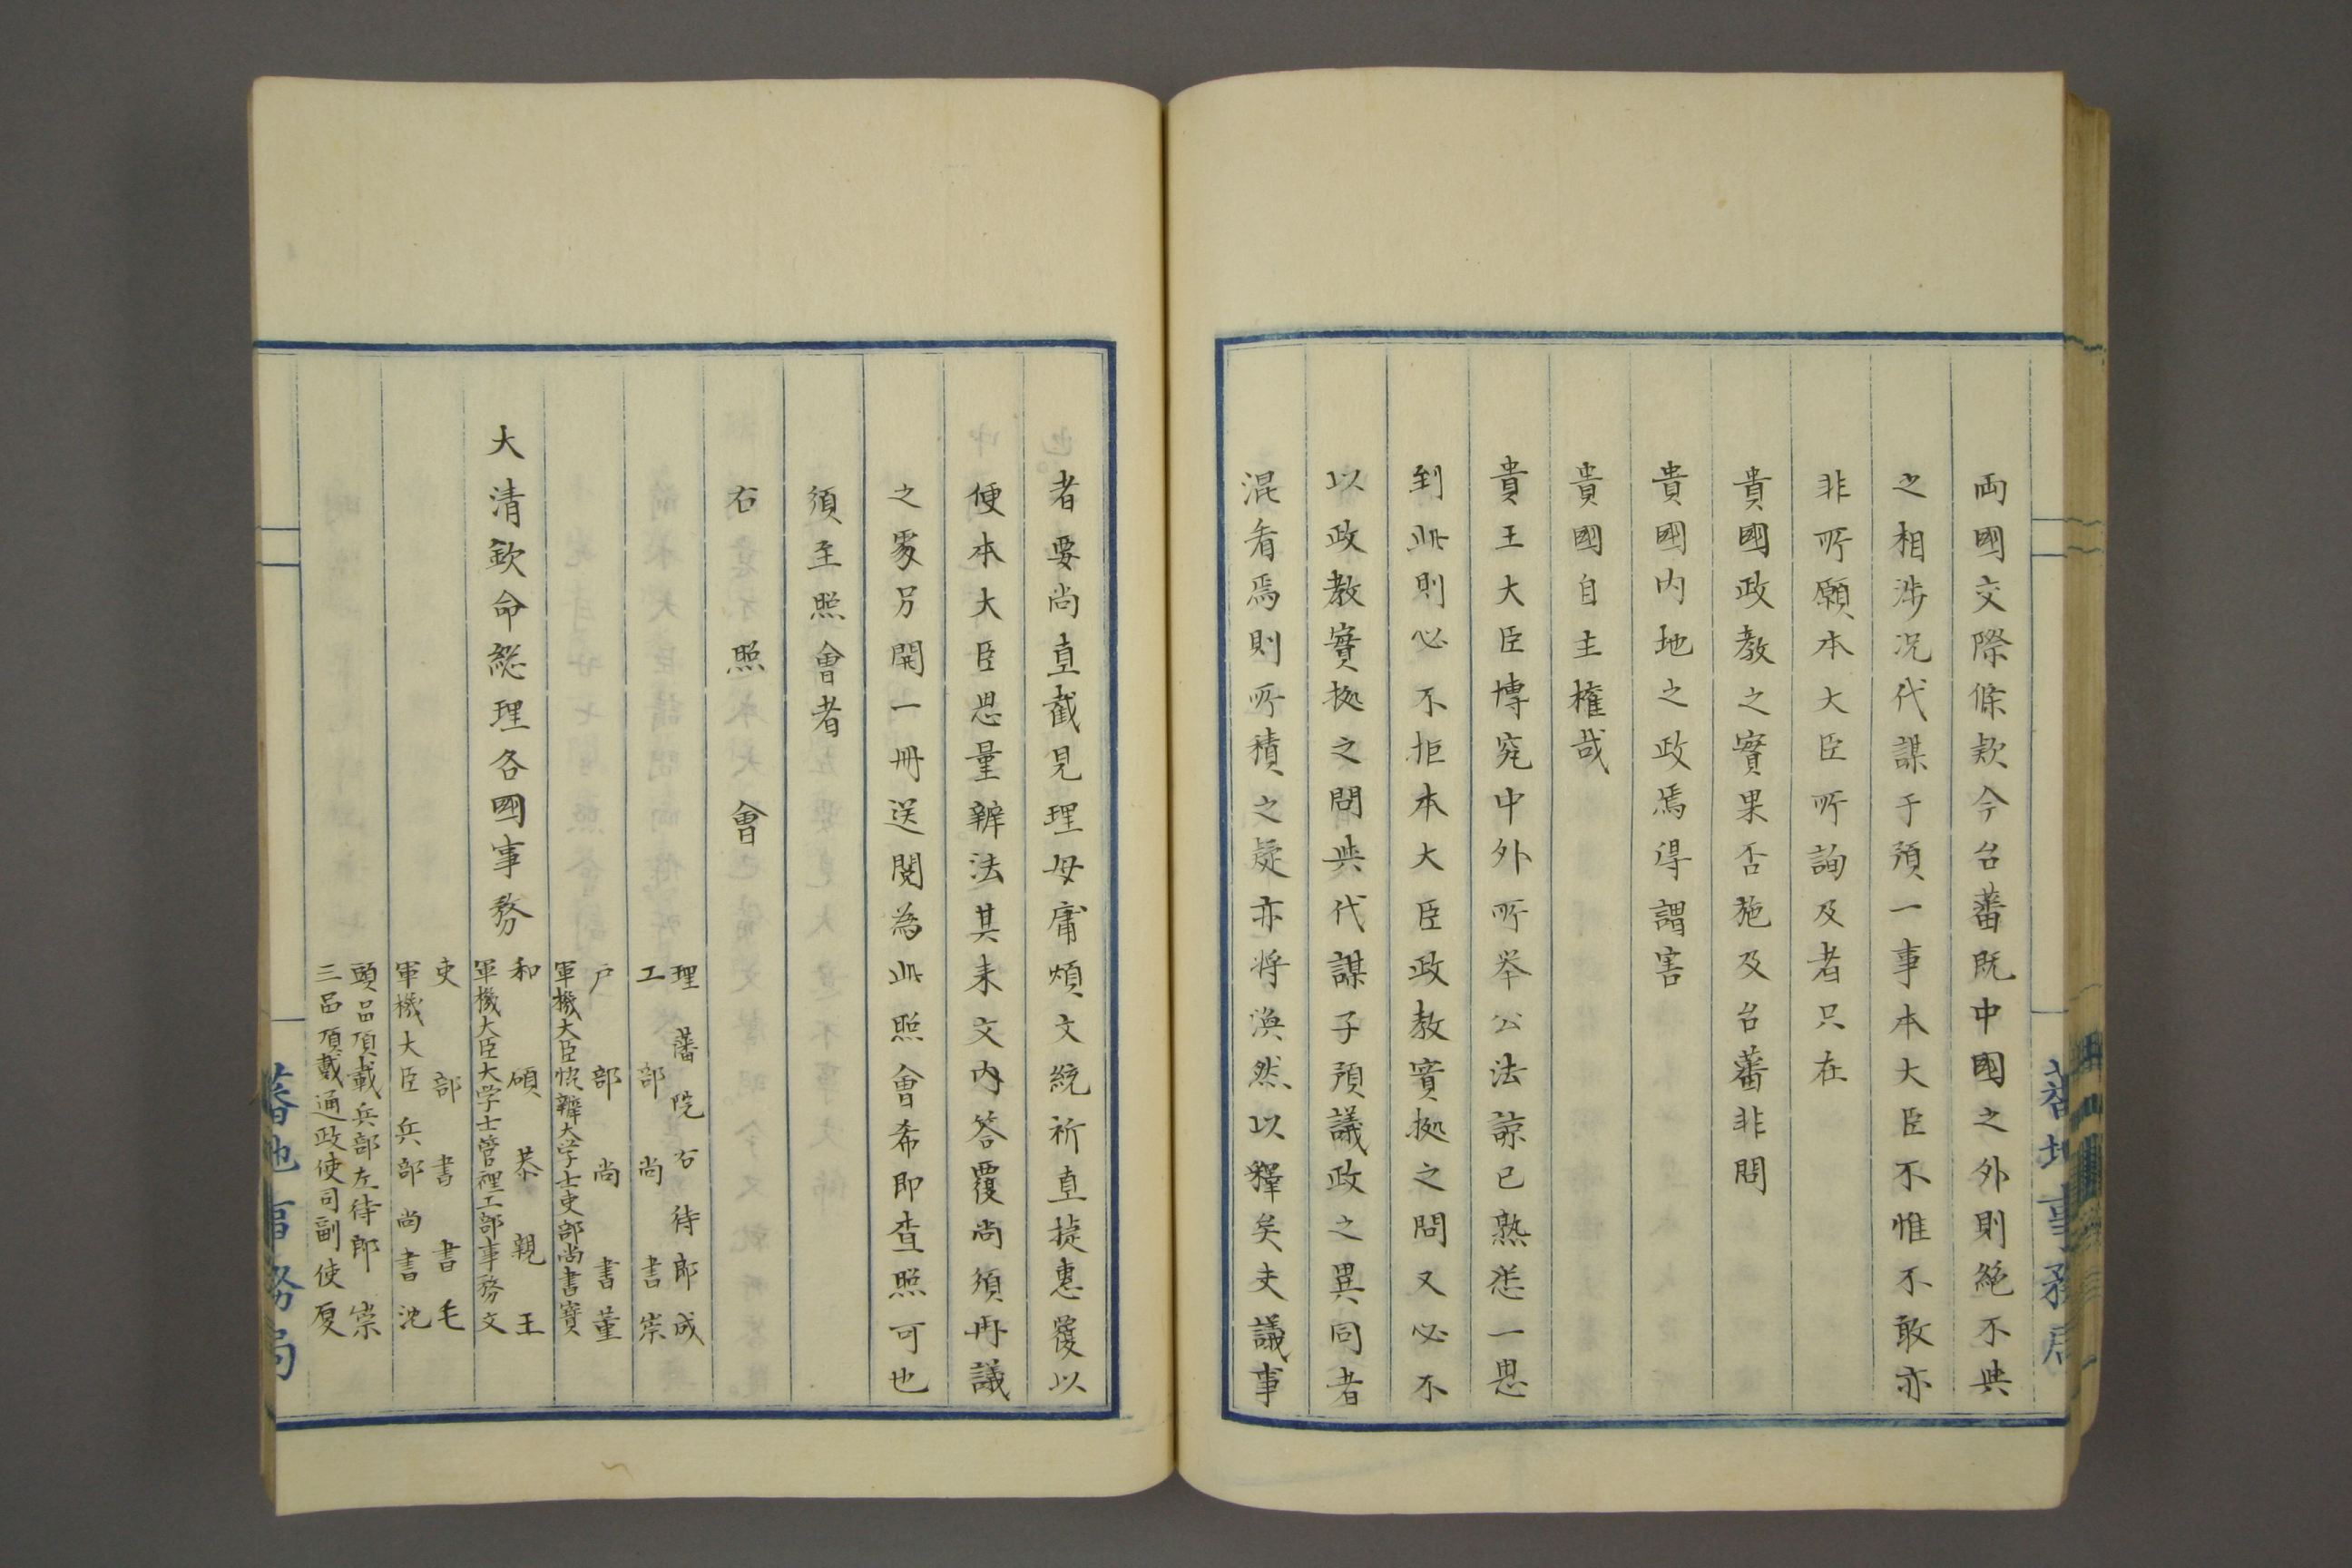 両國交際條欵今台蕃既中國之外則絶不與
之相渉况代謀于預一事本大臣不惟不敢亦
非所願本大臣所詢及者只在
貴國政教之實果否施及台蕃非問
貴國内地之政焉得謂害
貴國自主權哉
貴王大臣博究中外所举公法諒已熟悉一思
到此則必不拒本大臣政教實拠之問又必不
以政教實拠之問與代謀子預議政之異同者
混看焉則所積之疑亦将渙然以釋矣夫議事
者要尚直截見理毋庸煩文統祈直捷惠覆以
便本大臣思量辨法其来文内答覆尚須再議
之處另開一冊送閲為此照會希即查照可也
須至照會者
右照會
理藩院右待郎成
工部尚書崇
户部尚書董
軍機大臣恊辦大学士吏部尚書寳
大清欽命総理各國事務
和碩恭親王
軍機大臣大学士管理工部事務文
吏部書書毛
軍機大臣兵部尚書沈
頭品頂戴兵部左待郎崇
三品頂戴通政使司副使夏
蕃地事務局